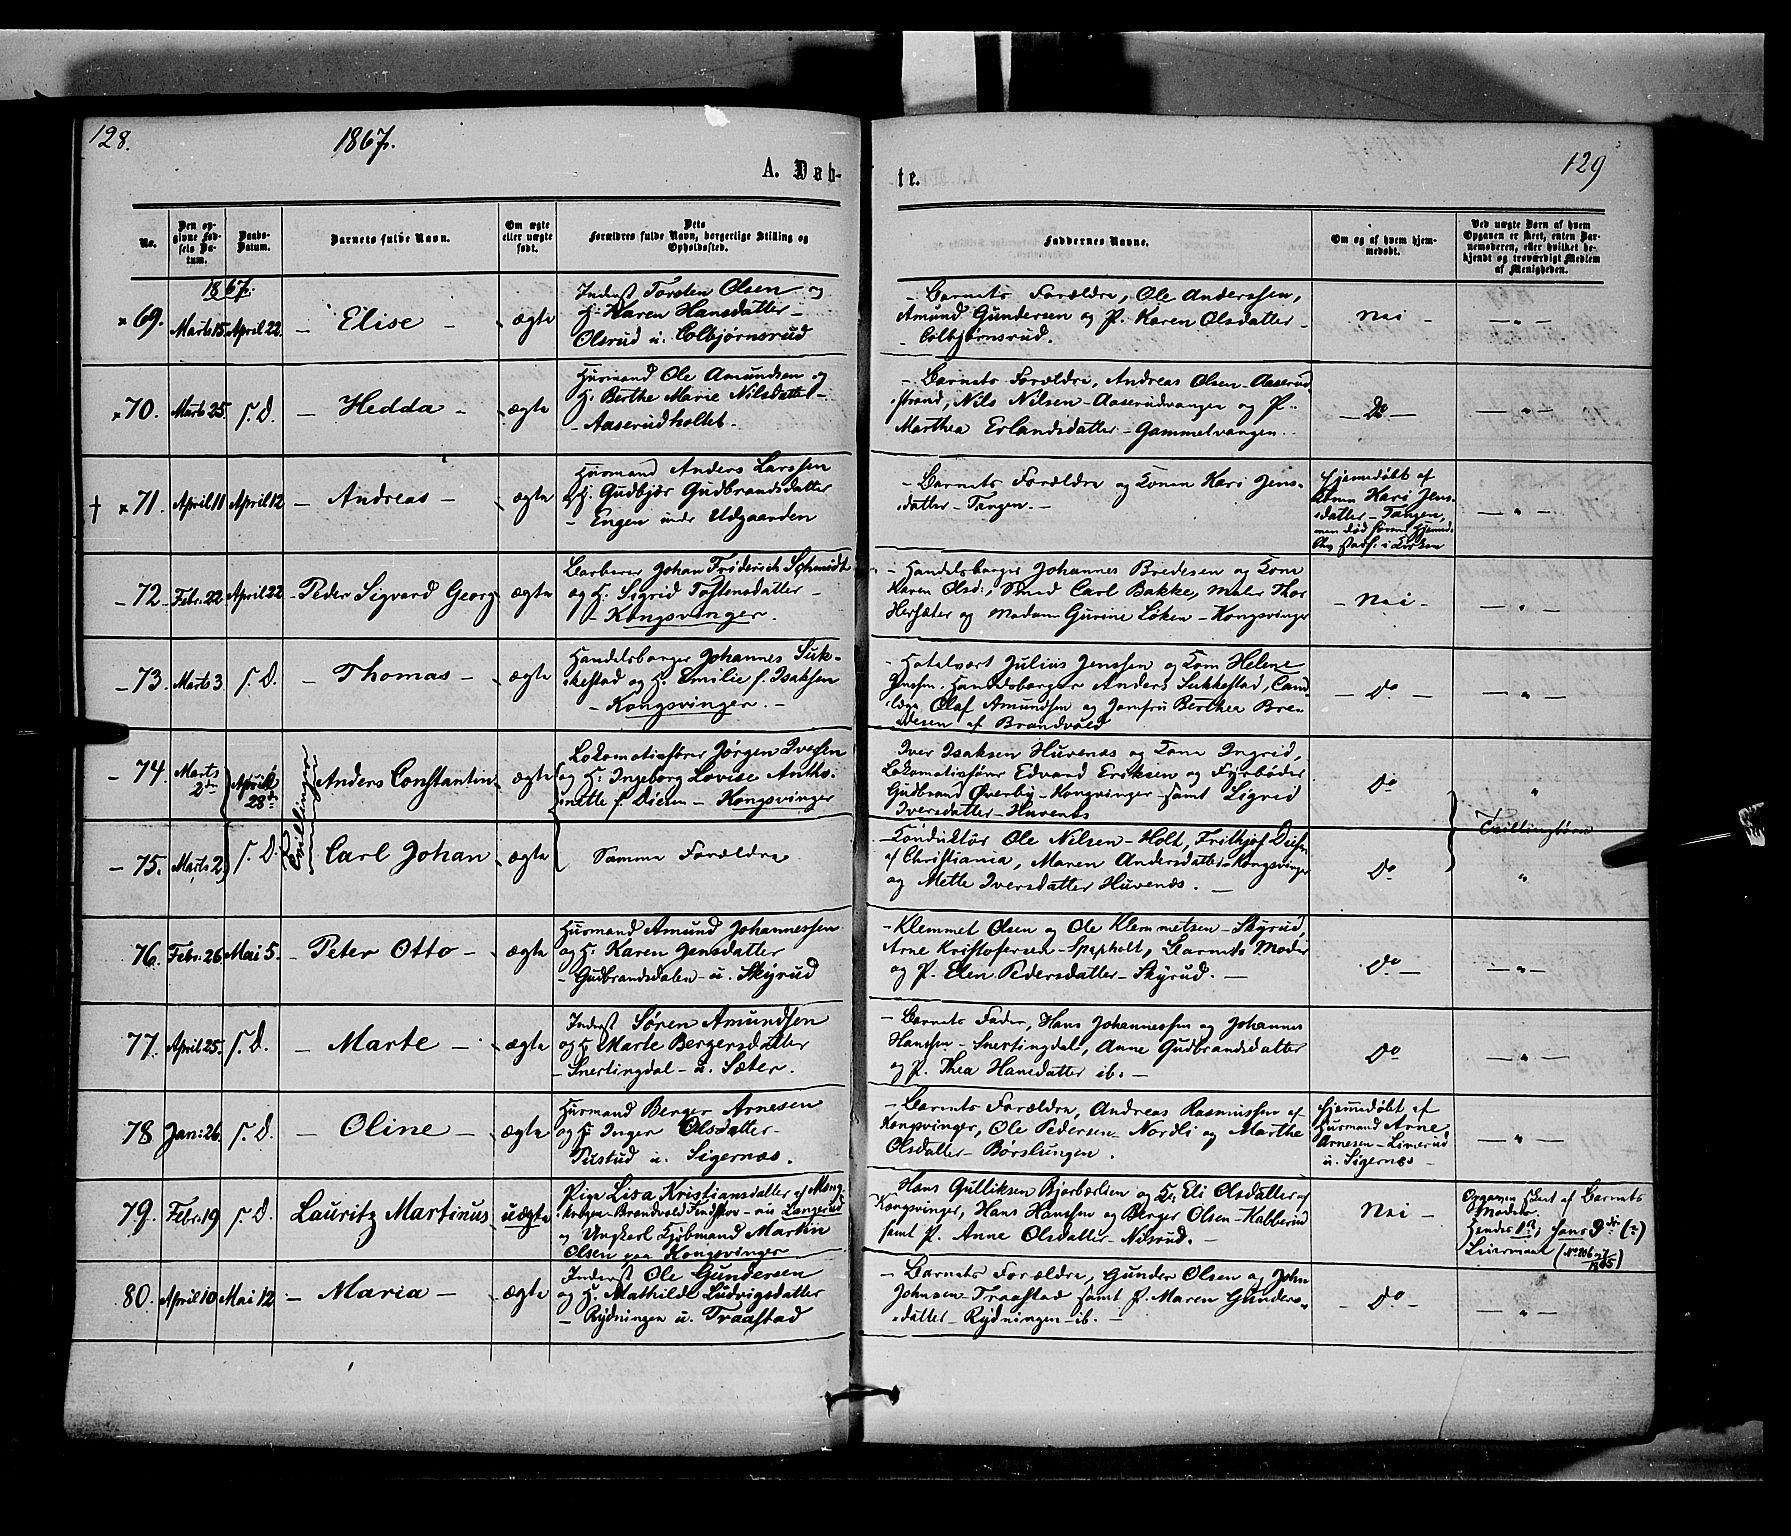 128.
1867.
A. Døb-
No.
Den opgivne Fødsels Datum.
Daabs-Datum.
Barnets fulde Navn.
Om ægte eller uægte født.
Dets Forældres fulde Navn, borgerlige Stilling og Opholdssted.
1867.
× 69. Marts 15 April 22 – Elise – ægte
Inderst Torsten Olsen og
H. Karen Hansdatter –
Olsrud u. Colbjørnsrud
× 70. Marts 25 s. D. – Hedda – ægte
Husmand Ole Amundsen og
H. Berthe Marie Nilsdatter
– Aaserudholtet –
† × 71. April 11 April 12 – Andreas – ægte
Husmand Anders Larssen
H. Gudbjør Gudbrandsdatter
– Engen under Udgaarden
– 72. Febr: 22 April 22 – Peder Sigvard Georg ægte
Barberer Johan Friderich Schmidt
og H. Sigrid Tostensdatter –
– Kongsvinger.
– 73. Marts 3. s. D. – Thomas – ægte
Handelsborger Johannes Suk-
kestad og H. Emilie f. Isaksen
– Kongsvinger. –
– 74. Marts 2den April 28de Anders Constantin ægte
Lokomotivfører Jørgen Iversen
og H. Ingeborg Lovise Antho-
nette f. Diesen – Kongsvinger
Tvillinger
– 75. Marts 2 s. D. Carl Johan ægte
Samme Forældre
76. Febr: 26 Mai 5. – Peter Otto – ægte
Husmand Amund Johannessen
og H. Karen Jensdatter
– Gudbrandsdalen – u. Skyrud
77. April 25. s. D. – Marte – ægte
Inderst Søren Amundsen
og H. Marte Bergersdatter
– Snertingdal – u. Sæter.
78 Jan: 26. s. D. – Oline – ægte
Husmand Berger Arnesen
og H. Inger Olsdatter –
Pustud u. Sigernæs.
79. Febr. 19 s. D. Lauritz Martinus uægte
Pige Lisa Kristiansdatter af
Brandvold Langerud
og Ungkarl Kjøbmand Martin
Olsen paa Kongsvinger
80. April 10 Mai 12 – Maria – ægte
Inderst Ole Gundersen
og H. Mathilde Ludvigsdatter
– Rydningen u. Traastad
te.
129
Faddernes Navne.
Om og af hvem hjemmedøbt.
Ved uægte Børn af hvem Opgaven er skeet, enten Barnemoderen, eller hvilket bekjendt og troværdigt Medlem af Menigheden.
– Barnets Forældre, Ole Anderssen,
Amund Gundersen og P. Karen Olsdatter –
– Colbjørnsrud.
Nei – – „ –
– Barnets Forældre, Andreas Olsen – Aaserud
strand, Nils Nilsen – Aaserudvangen og P.
Marthea Erlandsdatter – Gammelvangen.
– Do – – „ –
– Barnets Forældre og Konen Kari Jens-
datter – Tangen. –
Hjemmedøbt af
Konen Kari Jens-
datter – Tangen,
men død
i Kirken
– „ –
– Handelsborger Johannes Bredesen og Kone
Karen Olsd:, Smed Carl Bakke, Maler Thor
Hersæter og Madam Gurine Løken – Kongsvinger
– Nei – – „ –
– Hotelvært Julius Jenssen og Kone Helene
Jenssen. Handelsborger Anders Sukkestad, Cand
Olaf Amundsen og Jomfru Berthea Bre-
desen af Brandvold
– Do – – „ –
Iver Isaksen Huvenæs og Kone Ingrid,
Lokomotivfører Edvard Eriksen og Fyrbøder
Gudbrand Øverby – Kongsvinger – samt Sigrid
Iversdatter – Huvenæs
Do „
Tvillingbørn
– Konduktør Ole Nilsen – Holt, Frithjof Diesen
af Christiania, Maren Andersdatter – Kongsvinger
og Mette Iversdatter Huvenæs. –
Do „
– Klemmet Olsen og Ole Klemmetsen – Skyrud,
Arne Kristofersen – Barnets Moder
og P. Elen Pedersdatter – Skyrud. –
– Do – – „ –
– Barnets Fader, Hans Johannessen og Johannes
Hanssen – Snertingdal, Anne Gudbrandsdatter
og P. Thea Hansdatter ib. –
Do – „ –
– Barnets Forældre, Andreas Rasmussen af
Kongsvinger, Ole Pedersen – Nordli og Marthe
Olsdatter – Børslungen.
Hjemmedøbt af
Husmand Arne
Arnesen – Limerud
u. Sigernæs –
– „ –
Hans Gulliksen og K. Eli Olsdatter af
Kongsvinger, Hans Hanssen og Berger Olsen – Kabberud
samt P. Anne Olsdatter – Nilsrud. –
Nei –
Opgaven skeet af Barnets
Moder.
Hendes 1ste; hans 3die (?)
Leiermaal (No 206 1865)
– Barnets Forældre, Gunder Olsen og John
Johnsen – Traastad samt P. Maren Gunders-
datter – Rydningen – ib. –
– Do – – „ –